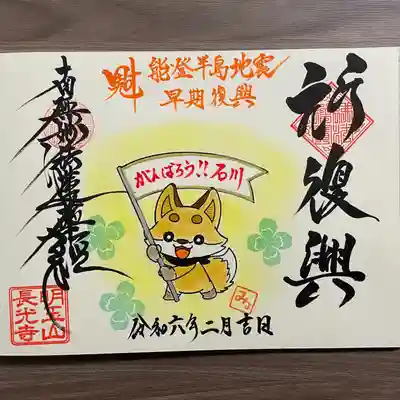 祈復興
魁
能登半島地震
早期復興
がんばろう!!石川
令和六年二月吉日
南無妙法蓮華経
明王山
長光寺